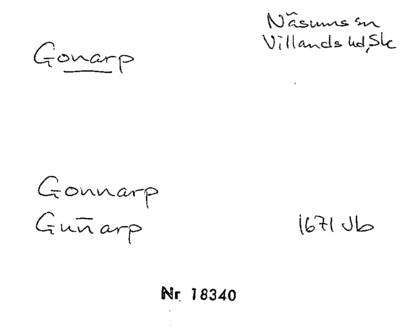 Gonarp
Näsums sn
Villands hd, Sk
Gonnarp
Guñarp 1671 Jb
Nr 18340